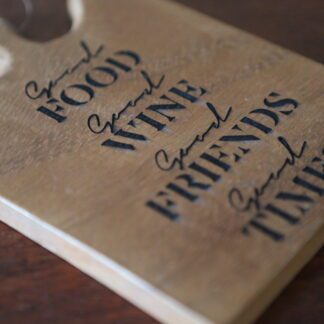 Good
FOOD
Good
WINE
Good
FRIENDS
Good
TIMES